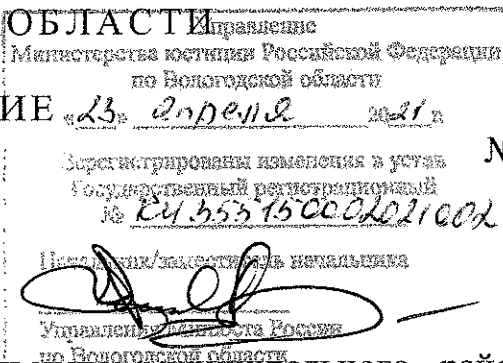 ОБЛАСТИ
Управление
Министерства юстиции Российской Федерации
по Вологодской области
ИЕ «23» апреля 2021 г.
Зарегистрированы изменения в устав
Государственный регистрационный
№ RU 355150002021002
Начальник/заместитель начальника
Управления Минюста России
по Вологодской области